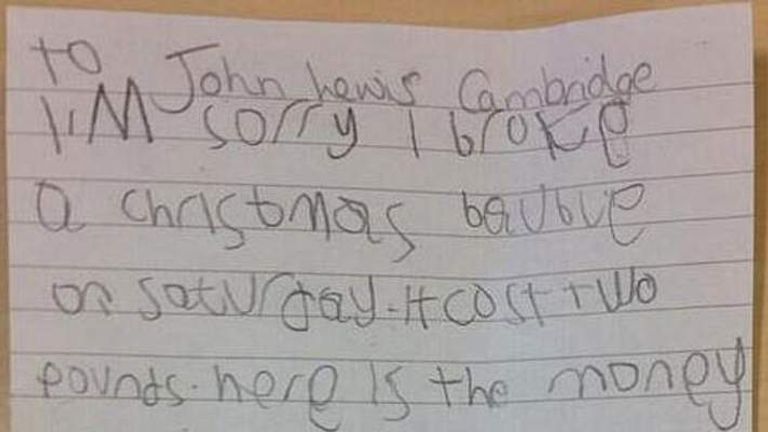 to John Lewis Cambridge
I'M sorry I broke
a christmas baubue
on saturday. It cost two
pounds. here is the money